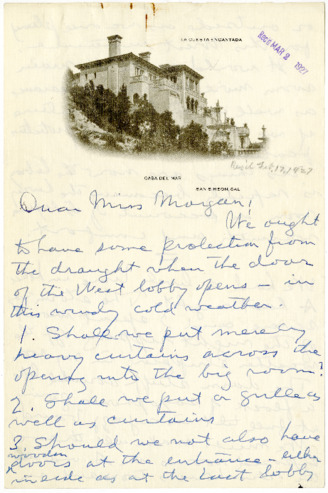 LA CUESTA ENCANTADA
REC'D MAR 2 1927
CASA DEL MAR
SAN SIMEON, CAL.
Rec'd Feb, 17, 1927
Dear Miss Morgan,
We ought
to have some protection from
the draught when the door
of the West lobby opens – in
this windy cold weather.
1. Shall we put merely
heavy curtains across the
opening into the big room?
2. Shall we put a grille as
well as curtains
3. Should we not also have
wooden
doors at the entrance – either
inside as at the East lobby